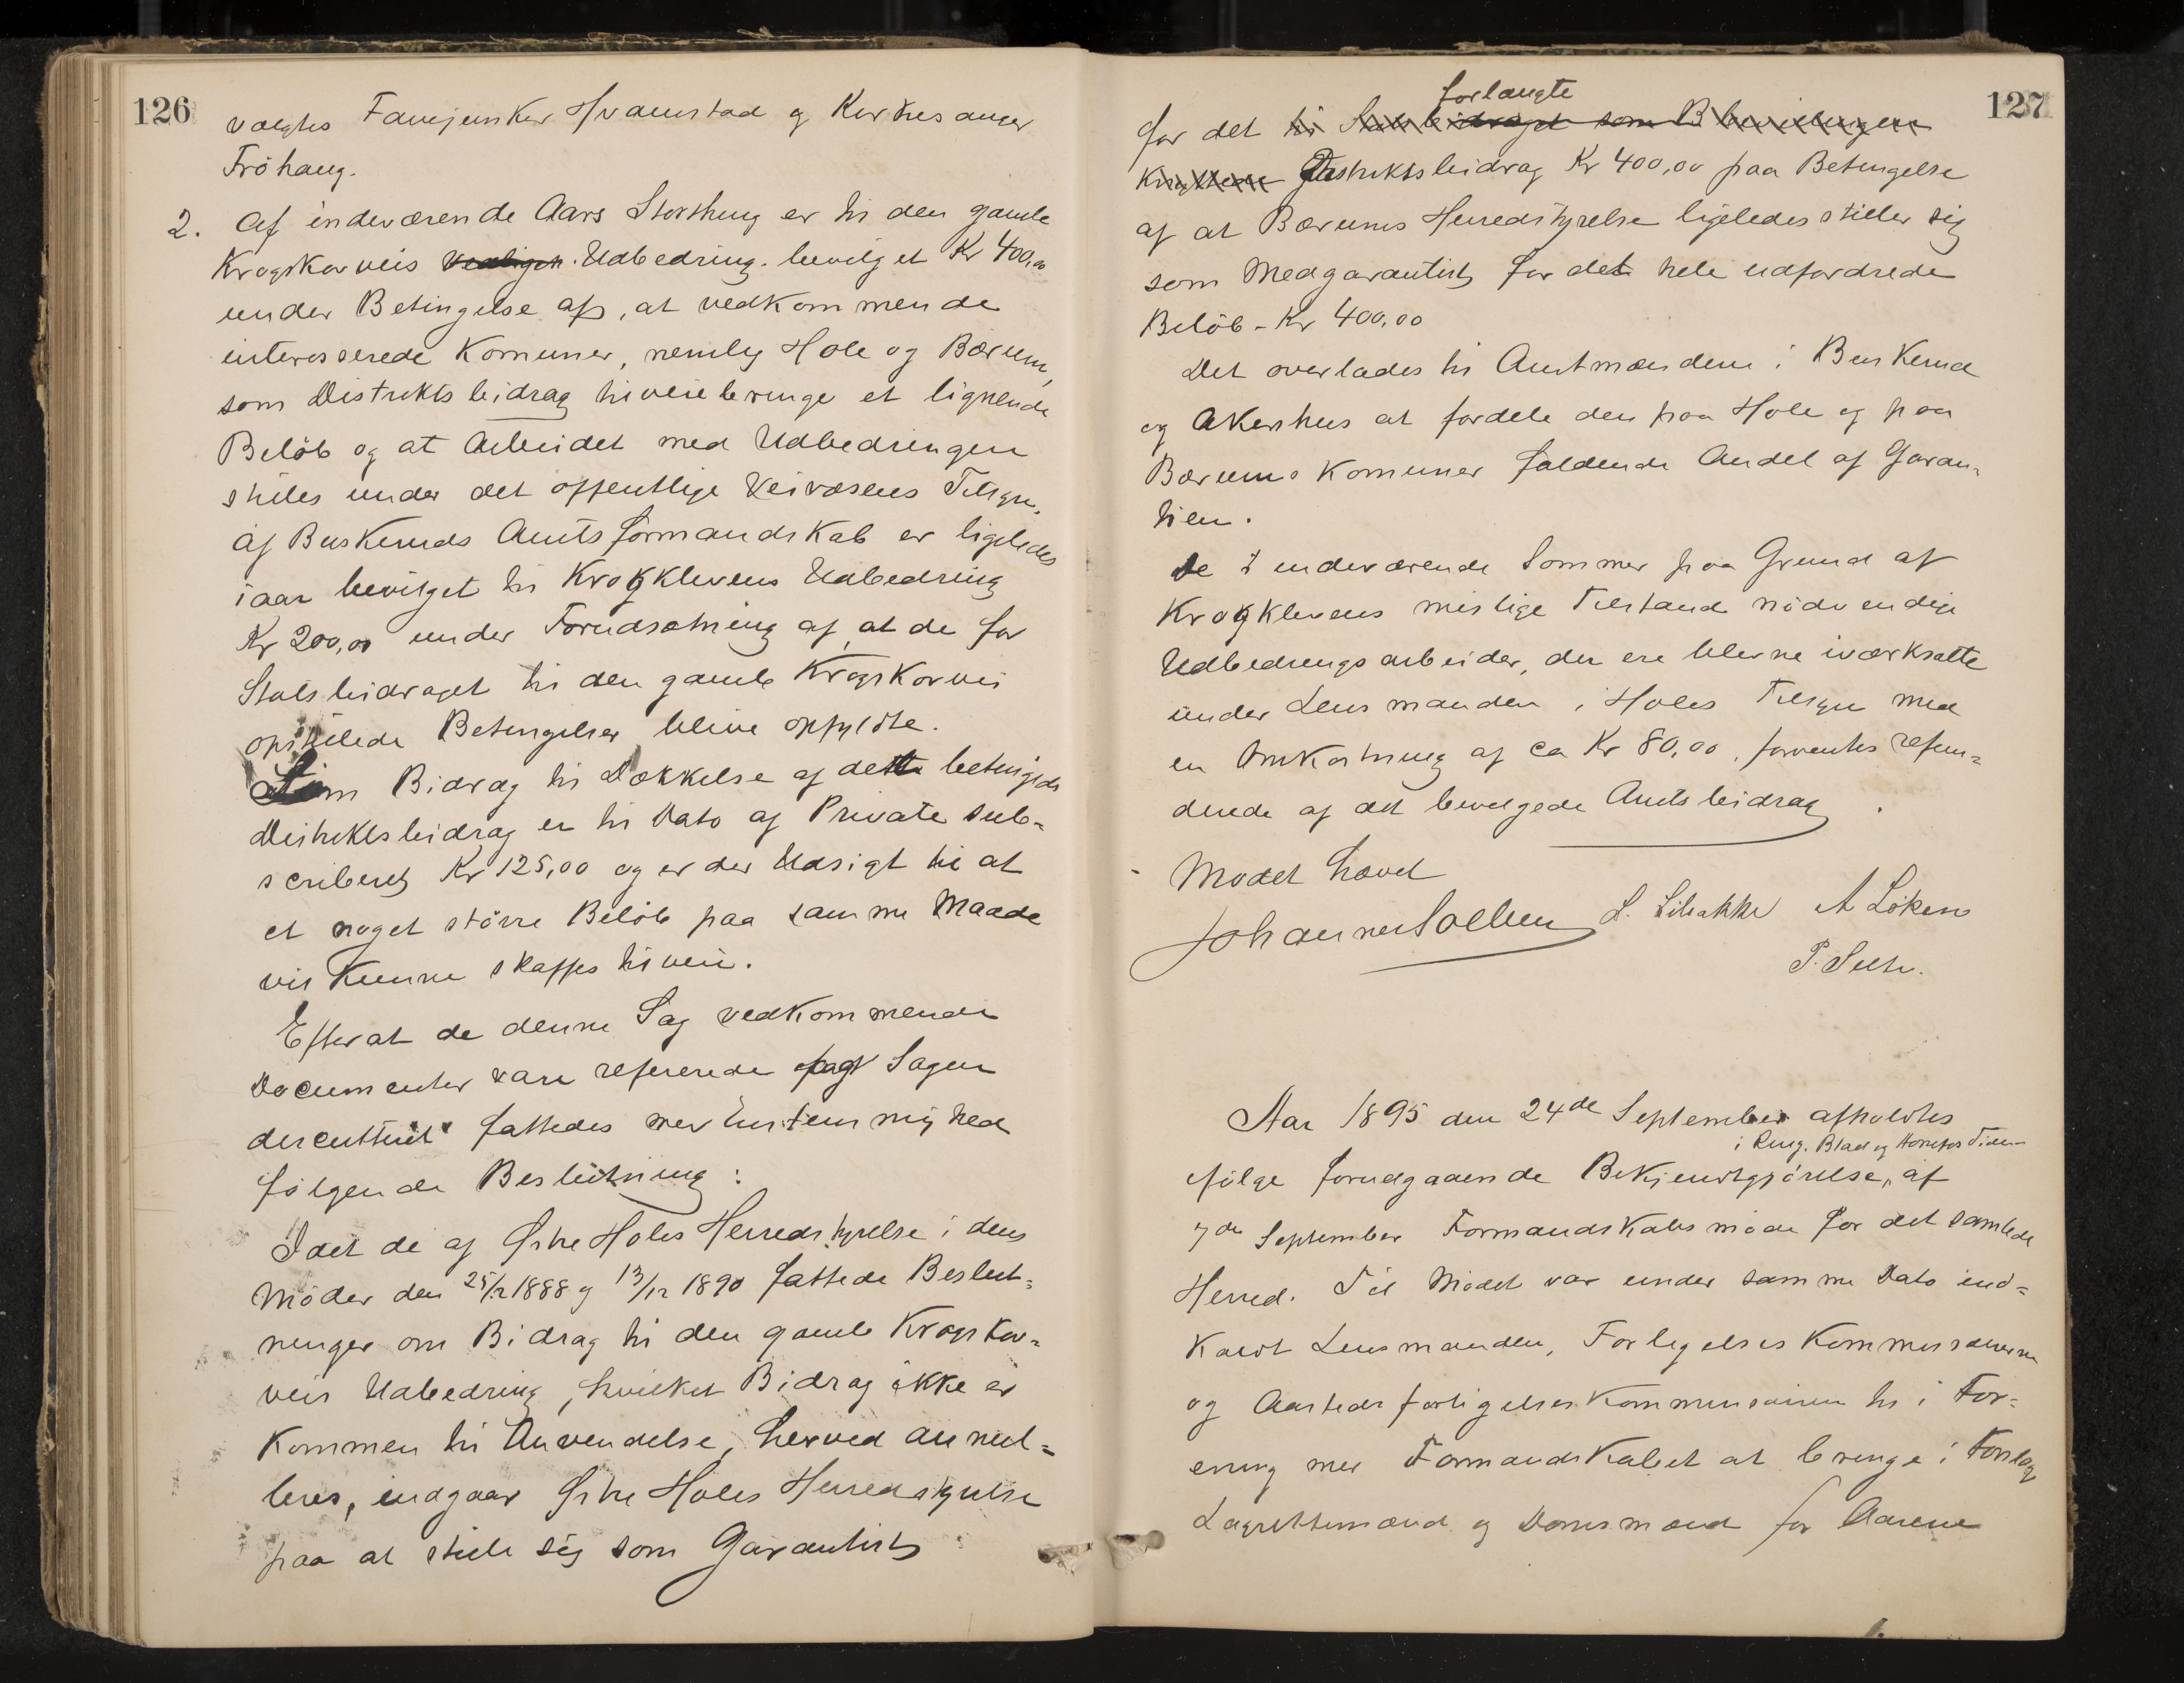 126
valgtes Fanejunker Hvamstad og Kirkesanger
Fröhaug.
2. Af indeværende Aars Storthing er til den gamle
Krogskovveis Vedligeh. Udbedring bevilget Kr 400,00
under Betingelse af, at vedkommende
interesserede Komuner, nemlig Hole og Bærum,
som Distriktsbidrag tilveiebringe et lignende
Belöb og at Arbeidet med Udbedringen
stilles under det offentlige Veivæsens Tilsyn.
Af Buskeruds Amtsformandskab er ligeledes
iaar bevilget til Krogklevens Udbedring
Kr 200,00 under Forudsætning af, at de for
Statsbidraget til den gamle Krogskovvei
opstillede Betingelser blive opfyldte.
Som Bidrag til Dækkelse af dette betingede
Distriktsbidrag er til Dato af Private sub=
scriberet Kr 125,00 og er der Udsigt til at
et noget större Belöb paa samme Maade
vil kunne skaffes tilveie.
Efterat de denne Sag vedkommende
Documenter vare refererede og Sagen
discutteret fattedes med Enstemmighed
fölgende Beslutning:
Idet de af Östre Holes Herredstyrelse i dens
Möder den 25/2 1888 og 13/12 1890 fattede Beslut=
ninger om Bidrag til den gamle Krogskov=
veis Udbedring, hvilket Bidrag ikke er
kommen til Anvendelse, herved annul=
leres, indgaar Östre Holes Herredstyrelse
paa at stille sig som Garantist
127
forlangte
for det til Statsbidraget som B bevilligen
Distriktsbidrag Kr 400,00 paa Betingelse
af at Bærums Herredstyrelse ligeledes stiller sig
som Medgarantist for det hele udfordrede
Belöb - Kr 400,00
Det overlades til Amtmændene i Buskerud
og Akershus at fordele den paa Hole og paa
Bærums Komuner faldende Andel af Garan=
tien.
De i indeværende Sommer paa Grund af
Krogklevens mislige Tilstand nödvendige
Udbedringsarbeider, der ere blevne iværksatte
under Lensmanden i Holes Tilsyn med
en Omkostning af ca Kr 80,00, forventes refun=
derede af det bevilgede Amtsbidrag.
Mödet hævet
Johannes Sollien L. Libakke A Löken
P. Selte.
Aar 1895 den 24de September afholdtes
i Ring. Blad og Hönefos Tidende
ifölge forudgaaende Bekjendtgjörelse, af
7de September Formandskabsmöde for det samlede
Herred. Til Mödet var under samme Dato ind=
kaldt Lensmanden, Forligelses Kommissærerne
og Aastedsforligelses Kommissairen til i For=
ening med Formandskabet at bringe i Forslag
Lagrettemænd og Domsmænd for Aarene